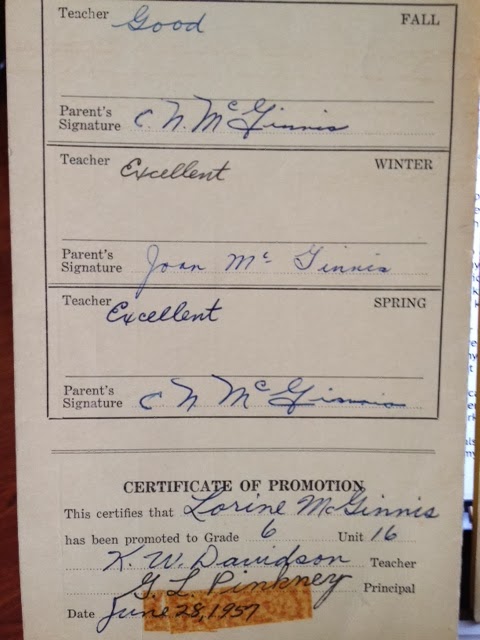 Teacher Good FALL
Parent's
Signature C. N. McGinnis
Teacher Excellent WINTER
Parent's
Signature Joan McGinnis
Teacher Excellent SPRING
Parent's
Signature C N McGinnis
CERTIFICATE OF PROMOTION
This certifies that Lorine McGinnis
has been promoted to Grade 6 Unit 16
K. W. Davidson Teacher
G. L. Pinkney Principal
Date June 28, 1957